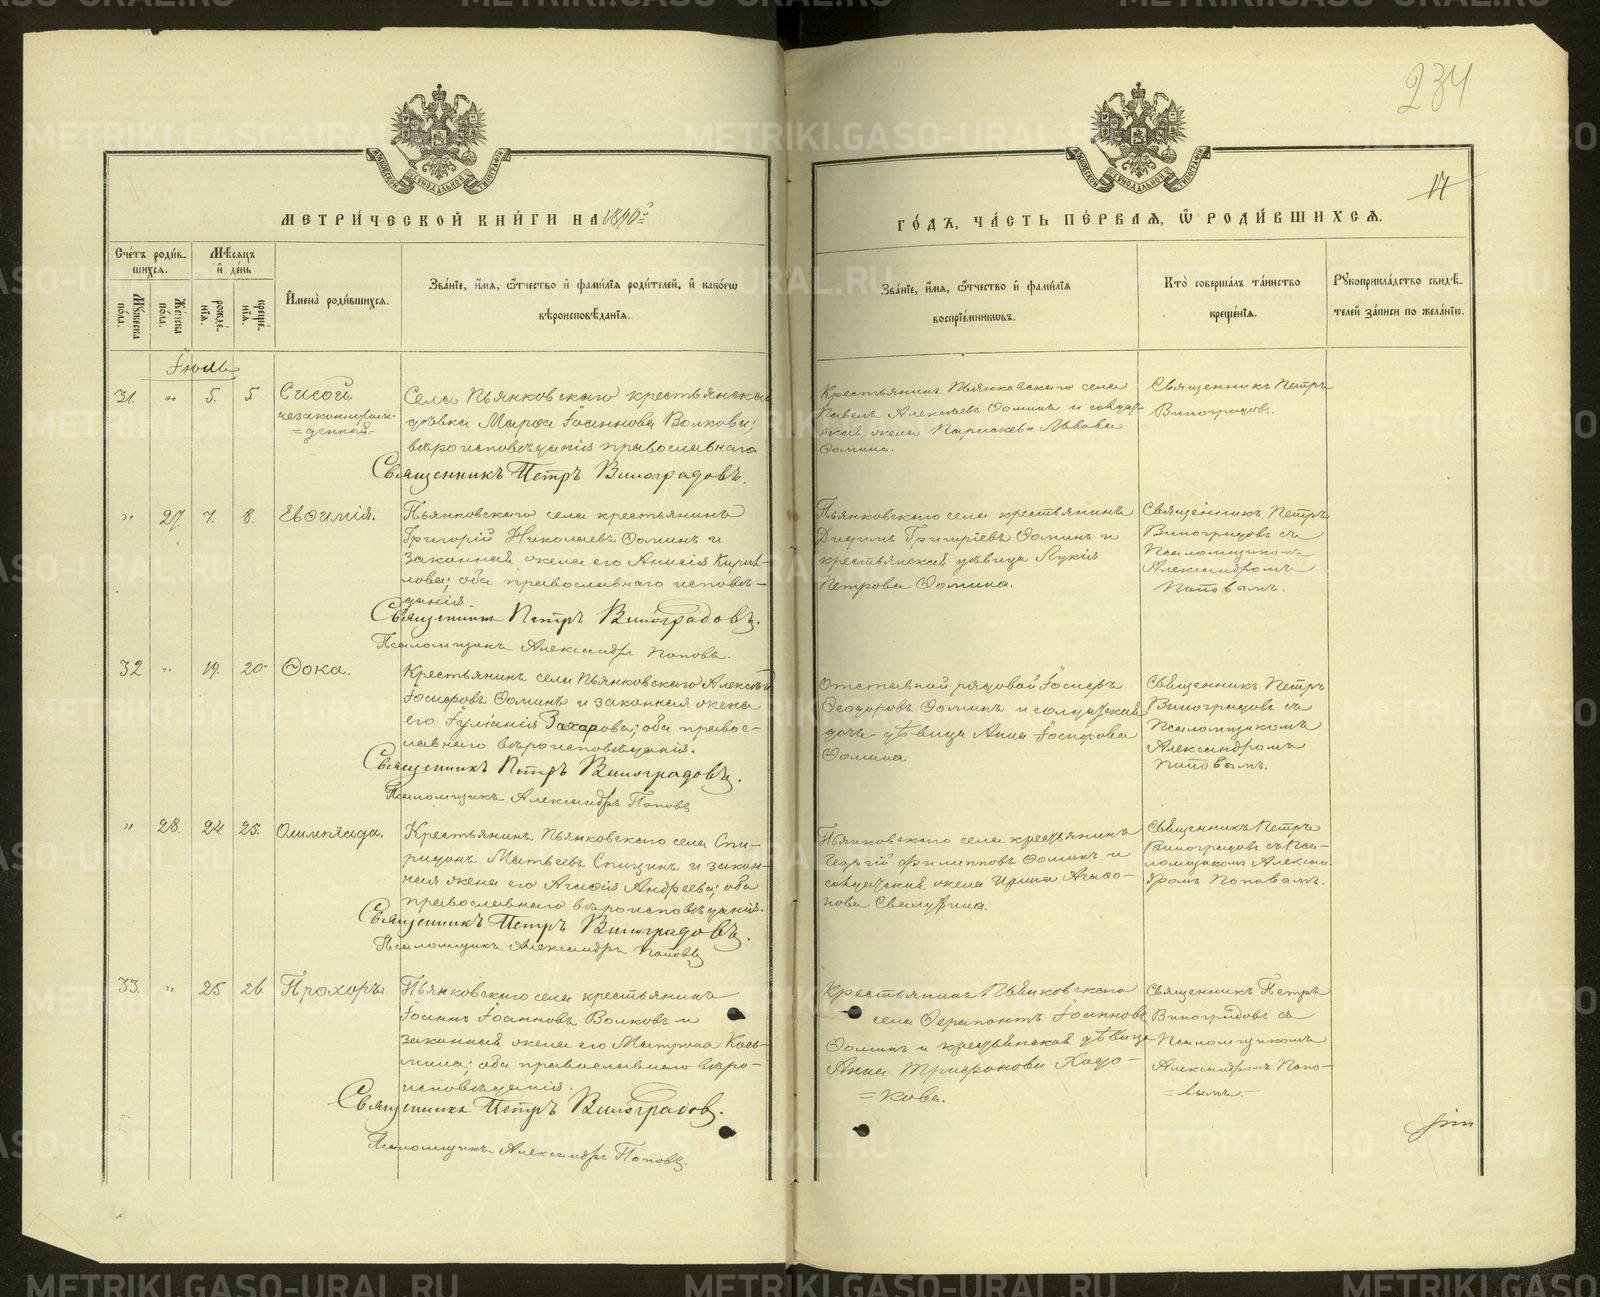 234
17
МЕТРИЧЕСКОЙ КНИГИ НА 1890
ГОДЪ, ЧАСТЬ ПЕРВАЯ, Ѡ РОДИВШИХСЯ.
Счетъ родив-
шихся.
Мѣсяцъ
и день
Мужеска
пола.
Женска
пола.
рожде-
нія.
креще-
нія.
Имена родившихся.
Званіе, имя, ѿчество и фамилія родителей, и какогѡ
вѣроисповѣданія.
Званіе, имя, ѿчество и фамилія
воспріемниковъ.
Кто совершалъ таинство
крещенія.
Рукоприкладство свидѣ-
телей записи по желанію.
Іюль
31. „ 5. 5 Сисой
незаконнорож-
=денный.
Села Пьянковскаго крестьянская
дѣвка Марѳа Іоаннова Волкова;
вѣроисповѣданія православнаго
Священникъ Петръ Виноградовъ.
Крестьянинъ Пьянковскаго села
Павелъ Алексѣевъ Ѳоминъ и солдат-
ская жена Параскева Львова
Ѳомина.
Священникъ Петръ
Виноградовъ.
„ 27. 7. 8. Евѳимія.
Пьянковскаго села крестьянинъ
Григорій Николаевъ Ѳоминъ и
законная жена его Анисія Кирил-
лова; оба православнаго исповѣ-
данія
Священникъ Петръ Виноградовъ.
Псаломщикъ Александръ Поповъ.
Пьянковскаго села крестьянинъ
Григоріевъ Ѳоминъ и
крестьянская дѣвица Лукія
Петрова Ѳомина.
Священникъ Петръ
Виноградовъ съ
Псаломщикомъ
Александромъ
Поповымъ.
32 „ 19. 20 Ѳока.
Крестьянинъ села Пьянковскаго Алексѣй
Іосифовъ Ѳоминъ и законная жена
его Іуліанія Захарова; оба правос-
лавнаго вѣроисповѣданія.
Священникъ Петръ Виноградовъ.
Псаломщикъ Александръ Поповъ
Отставной рядовой Іосифъ
Ѳеодоровъ Ѳоминъ и солдатская
дочь дѣвица Анна Іосифова
Ѳомина
Священникъ Петръ
Виноградовъ съ
Псаломщикомъ
Александромъ
Поповымъ.
„ 28. 24 25. Олимпіада.
Крестьянинъ Пьянковскаго села Спи-
ридонъ Матвеевъ Спицинъ и закон-
ная жена его Агафія Андреева; оба
православнаго вѣроисповѣданія.
Священникъ Петръ Виноградовъ.
Псаломщикъ Александръ Поповъ
Пьянковскаго села крестьянинъ
Георгій Филипповъ Ѳоминъ и
солдатская жена Ирина Агаѳо-
нова
Священникъ Петръ
Виноградовъ съ Пса-
ломщикомъ Алексан-
дромъ Поповымъ.
33. „ 25 26 Прохоръ.
Пьянковскаго села крестьянинъ
Іоаннъ Іоанновъ Волковъ и
законная жена его Матрона Козь-
мина; оба православнаго вѣро-
исповѣданія.
Священникъ Петръ Виноградовъ.
Псаломщикъ Александръ Поповъ.
Крестьянинъ Пьянковскаго
села Ѳерапонтъ Іоанновъ
Ѳоминъ и крестьянская дѣвица
Анна Трифонова Ходо-
=кова.
Священникъ Петръ
Виноградовъ съ
Псаломщикомъ
Александромъ Попо-
=вымъ.
METRIKI.GASO-URAL.RU